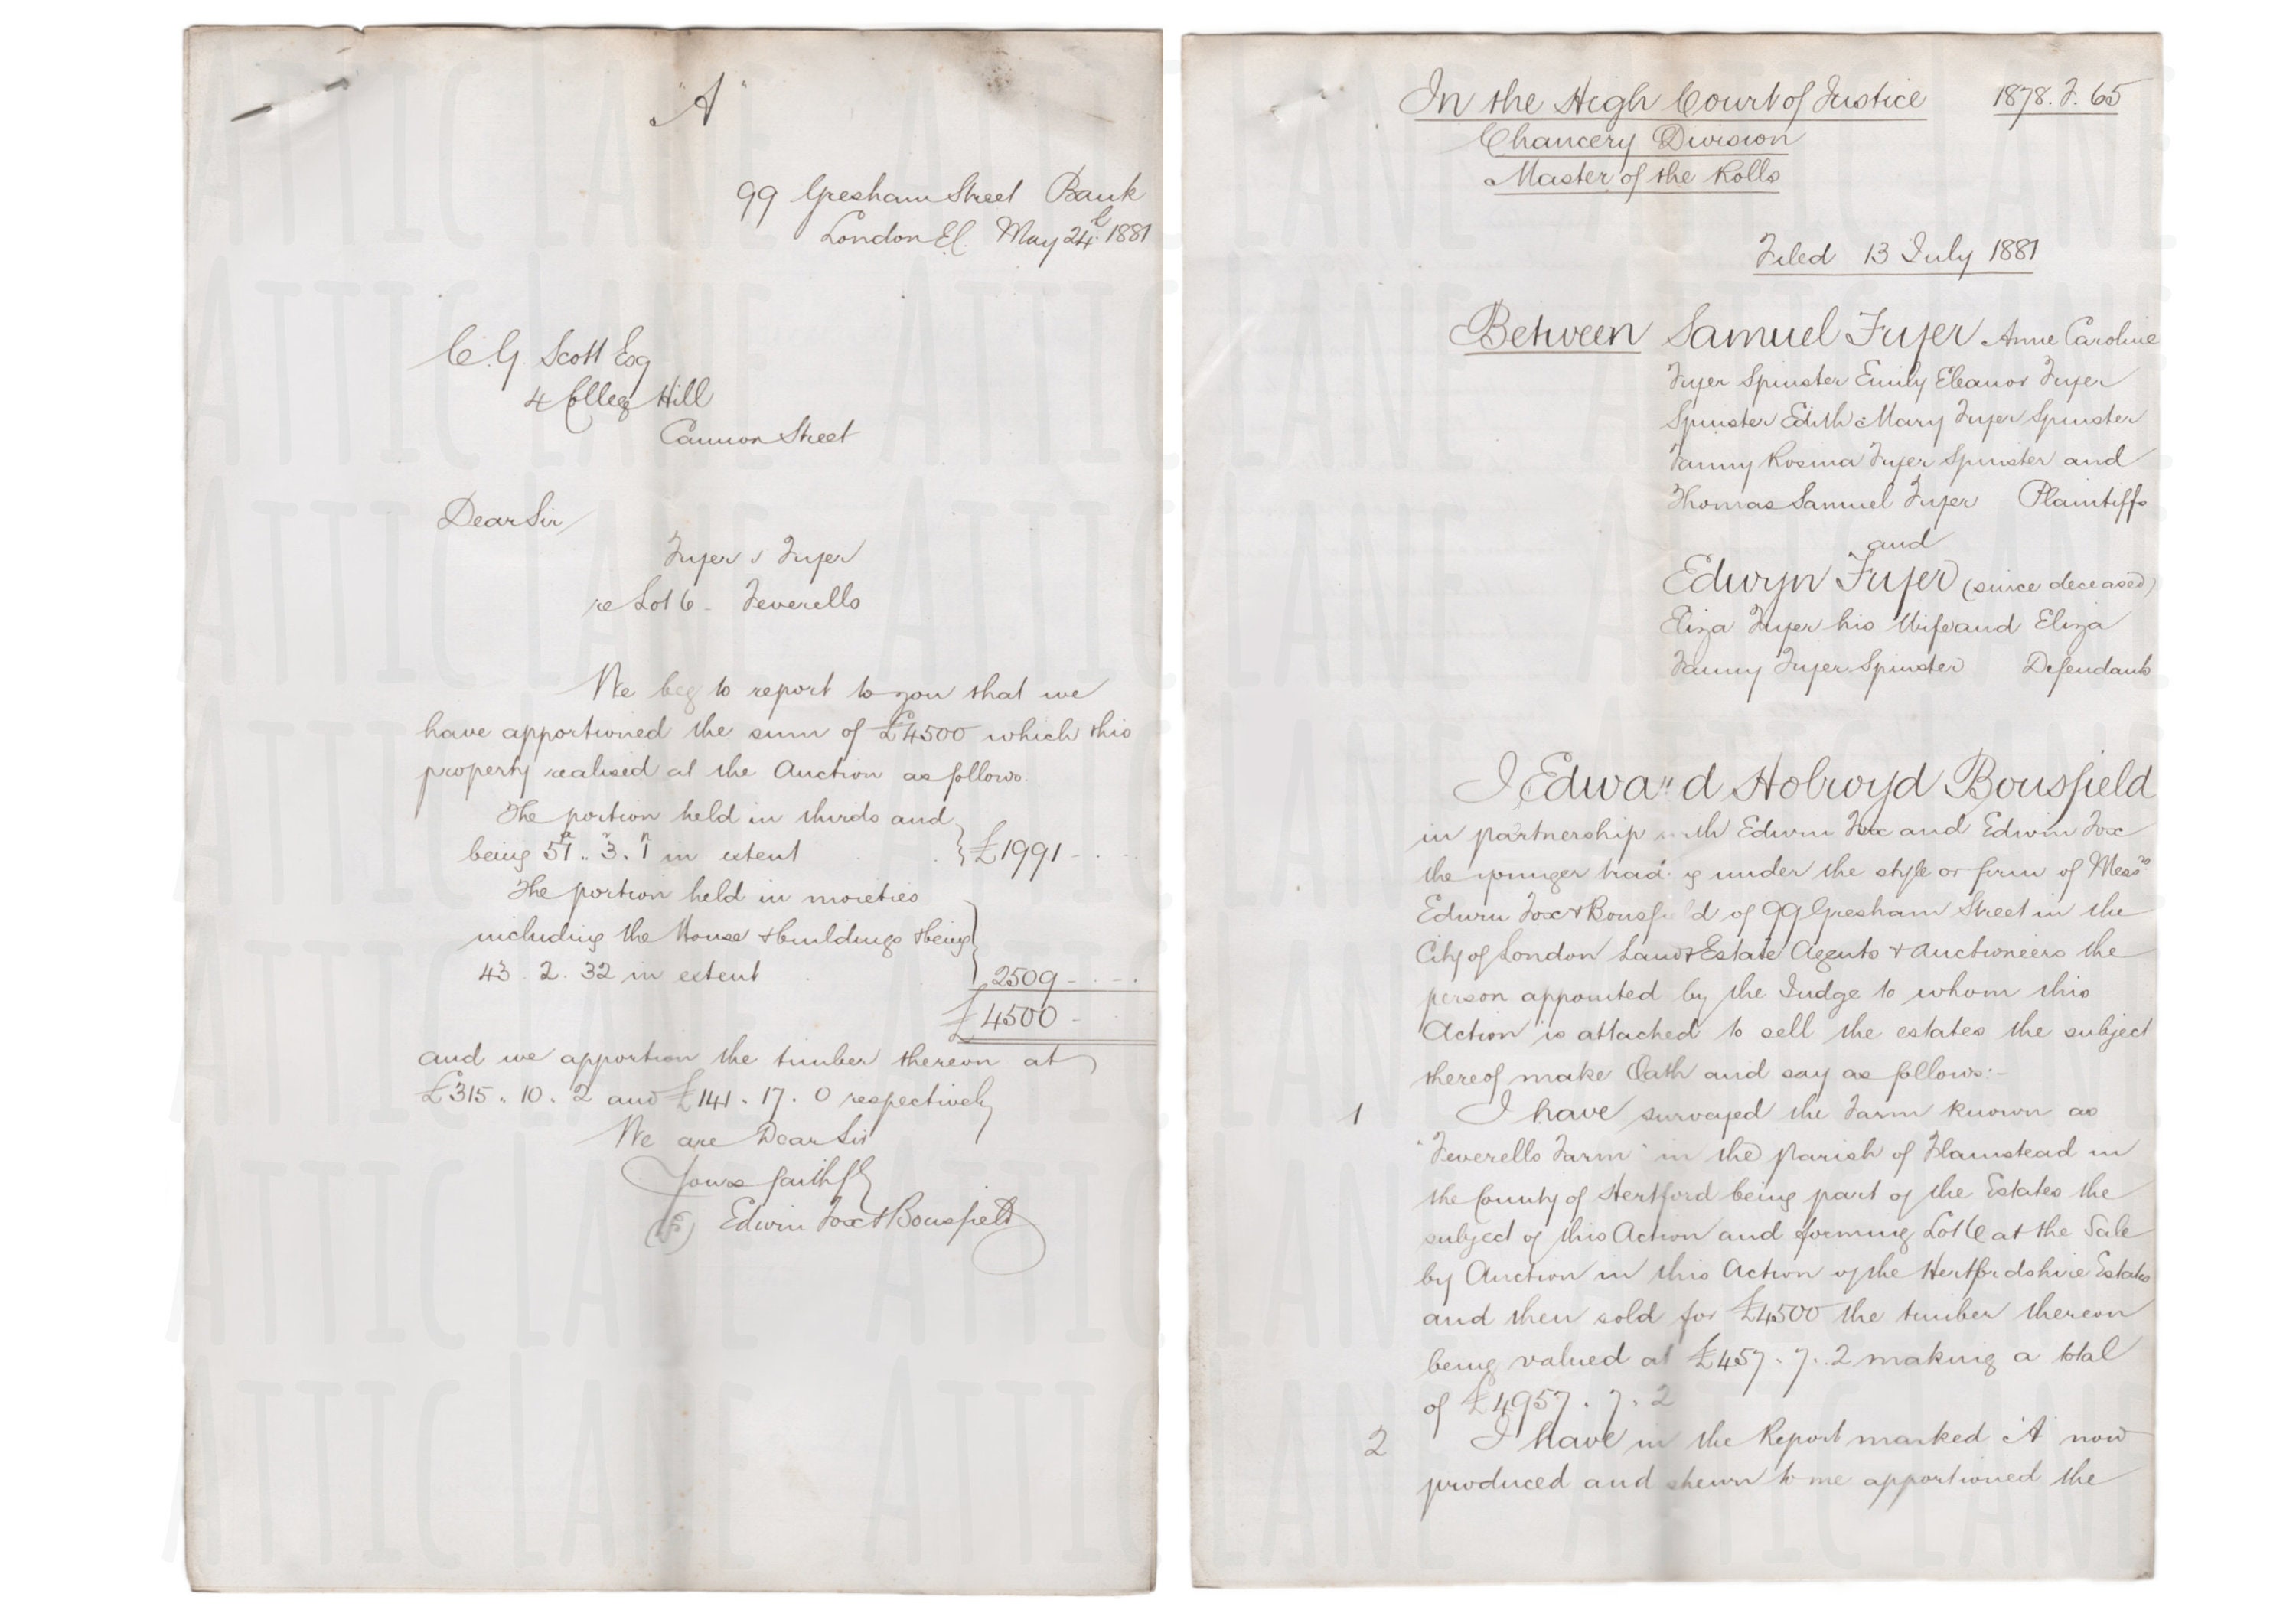 "A"
99 Gresham Street Bank
London E.C. May 24th 1881
C.G. Scott Esq
4 College Hill
Cannon Street
Dear Sir
Fryer v Fryer
re Lot 6 - Feverells
We beg to report to you that we
have apportioned the sum of £4500 which this
property realised at the Auction as follows.
The portion held in thirds and
being 51a.. 3r. 1p in extent } £1991 - . -
The portion held in moieties
including the House & buildings & being
43 . 2 . 32 in extent } 2509 - . - .
£4500 -
and we apportion the timber thereon at
£315 . 10 . 2 and £141 . 17 . 0 respectively
We are Dear Sir
Yours faithfly
(s) Edwin Fox & Bousfield
In the High Court of Justice 1878. F. 65
Chancery Division
Master of the Rolls
Filed 13 July 1881
Between Samuel Fryer Anne Caroline
Fryer Spinster Emily Eleanor Fryer
Spinster Edith Mary Fryer Spinster
Fanny Rosina Fryer Spinster and
Thomas Samuel Fryer Plaintiffs
and
Edwyn Fryer (since deceased)
Eliza Fryer his Wife and Eliza
Fanny Fryer Spinster Defendants
I Edward Holroyd Bousfield
in partnership with Edwin Fox and Edwin Fox
the younger trading under the style or firm of Messrs
Edwin Fox & Bousfield of 99 Gresham Street in the
City of London Land & Estate Agents & Auctioneers the
person appointed by the Judge to whom this
Action is attached to sell the estates the subject
thereof make Oath and say as follows:-
1 I have surveyed the Farm known as
"Feverells Farm" in the Parish of Flamstead in
the County of Hertford being part of the Estates the
subject of this Action and forming Lot 6 at the Sale
by Auction in this Action of the Hertfordshire Estates
and then sold for £4500 the timber thereon
being valued at £457 . 7 . 2 making a total
of £4957 . 7 . 2
2 I have in the Report marked A now
produced and shewn to me apportioned the
ATTIC LANE